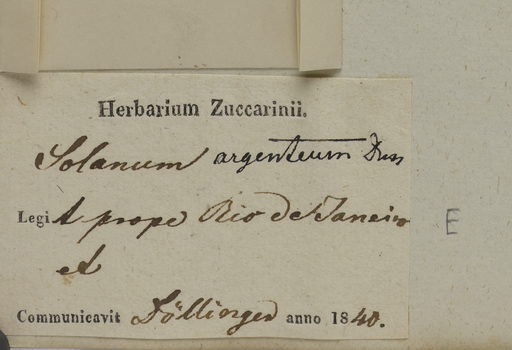 Herbarium Zuccarinii.
Solanum argenteum Dun
Legit prope Rio de Janeiro
et
Communicavit Döllinger anno 1840.
E